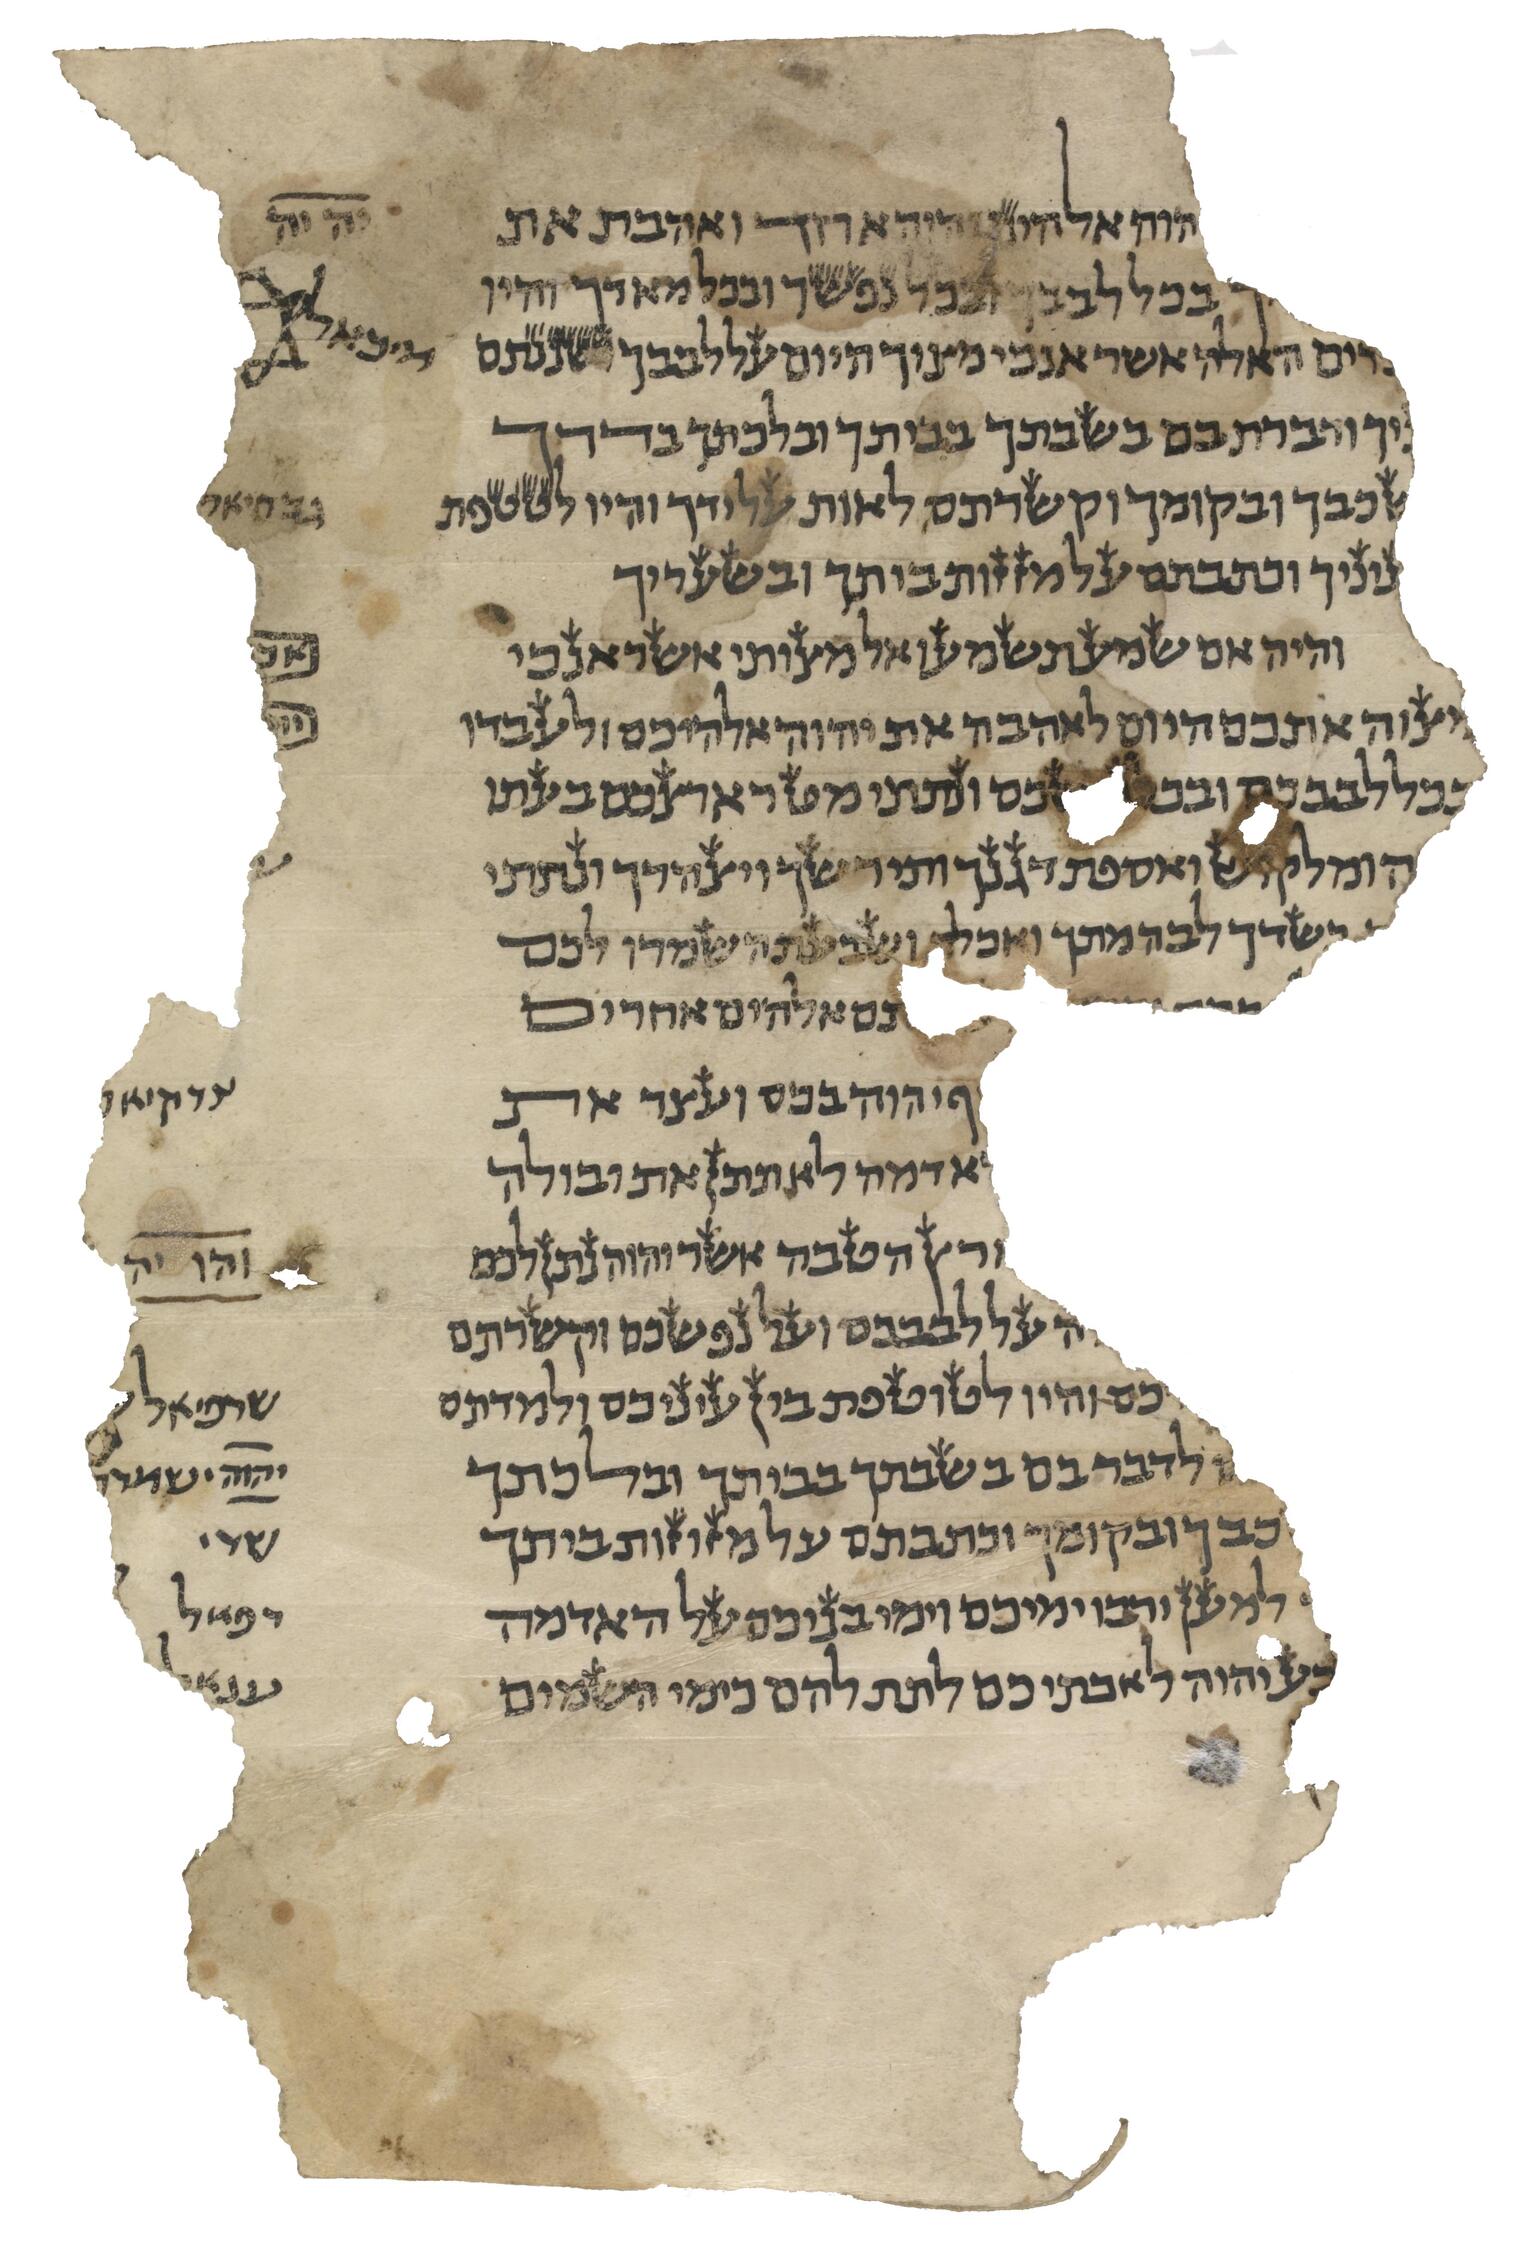 הוה אלהינו יהוה אחד ואהבת את יה יה
בכל לבבך ובכל נפשך ובכל מאדך והיו
רים האלה אשר אנכי מצוך היום על לבבך ושננתם מיכאל
ניך ודברת בם בשבתך בביתך ובלכתך בדרך
שכבך ובקומך וקשרתם לאות על ידך והיו לטטפת גבריאל
עיניך וכתבתם על מזזות ביתך ובשעריך
והיה אם שמע תשמעו אל מצותי אשר אנכי
מצוה אתכם היום לאהבה את יהוה אלהיכם ולעבדו
בכל לבבכם ובכל שכם ונתתי מטר ארצכם בעתו
ה ומלקוש ואספת דגנך ותירשך ויצהרך ונתתי
בשדך לבהמתך ואכלת ושבעת השמרו לכם
תם אלהים אחרים
ף יהוה בכם ועצר את צדקיאל
אדמה לא תתן את יבולה
רץ הטבה אשר יהוה נתן לכם והו יה
ה על לבבכם ועל נפשכם וקשרתם
כם והיו לטוטפת בין עיניכם ולמדתם שרפיאל
לדבר בם בשבתך בביתך ובלכתך יהוה ישמר
כבך ובקומך וכתבתם על מזוזות ביתך שדי
למען ירבו ימיכם וימי בניכם על האדמה רפאל
בע יהוה לאבתיכם לתת להם כימי השמים ענאל